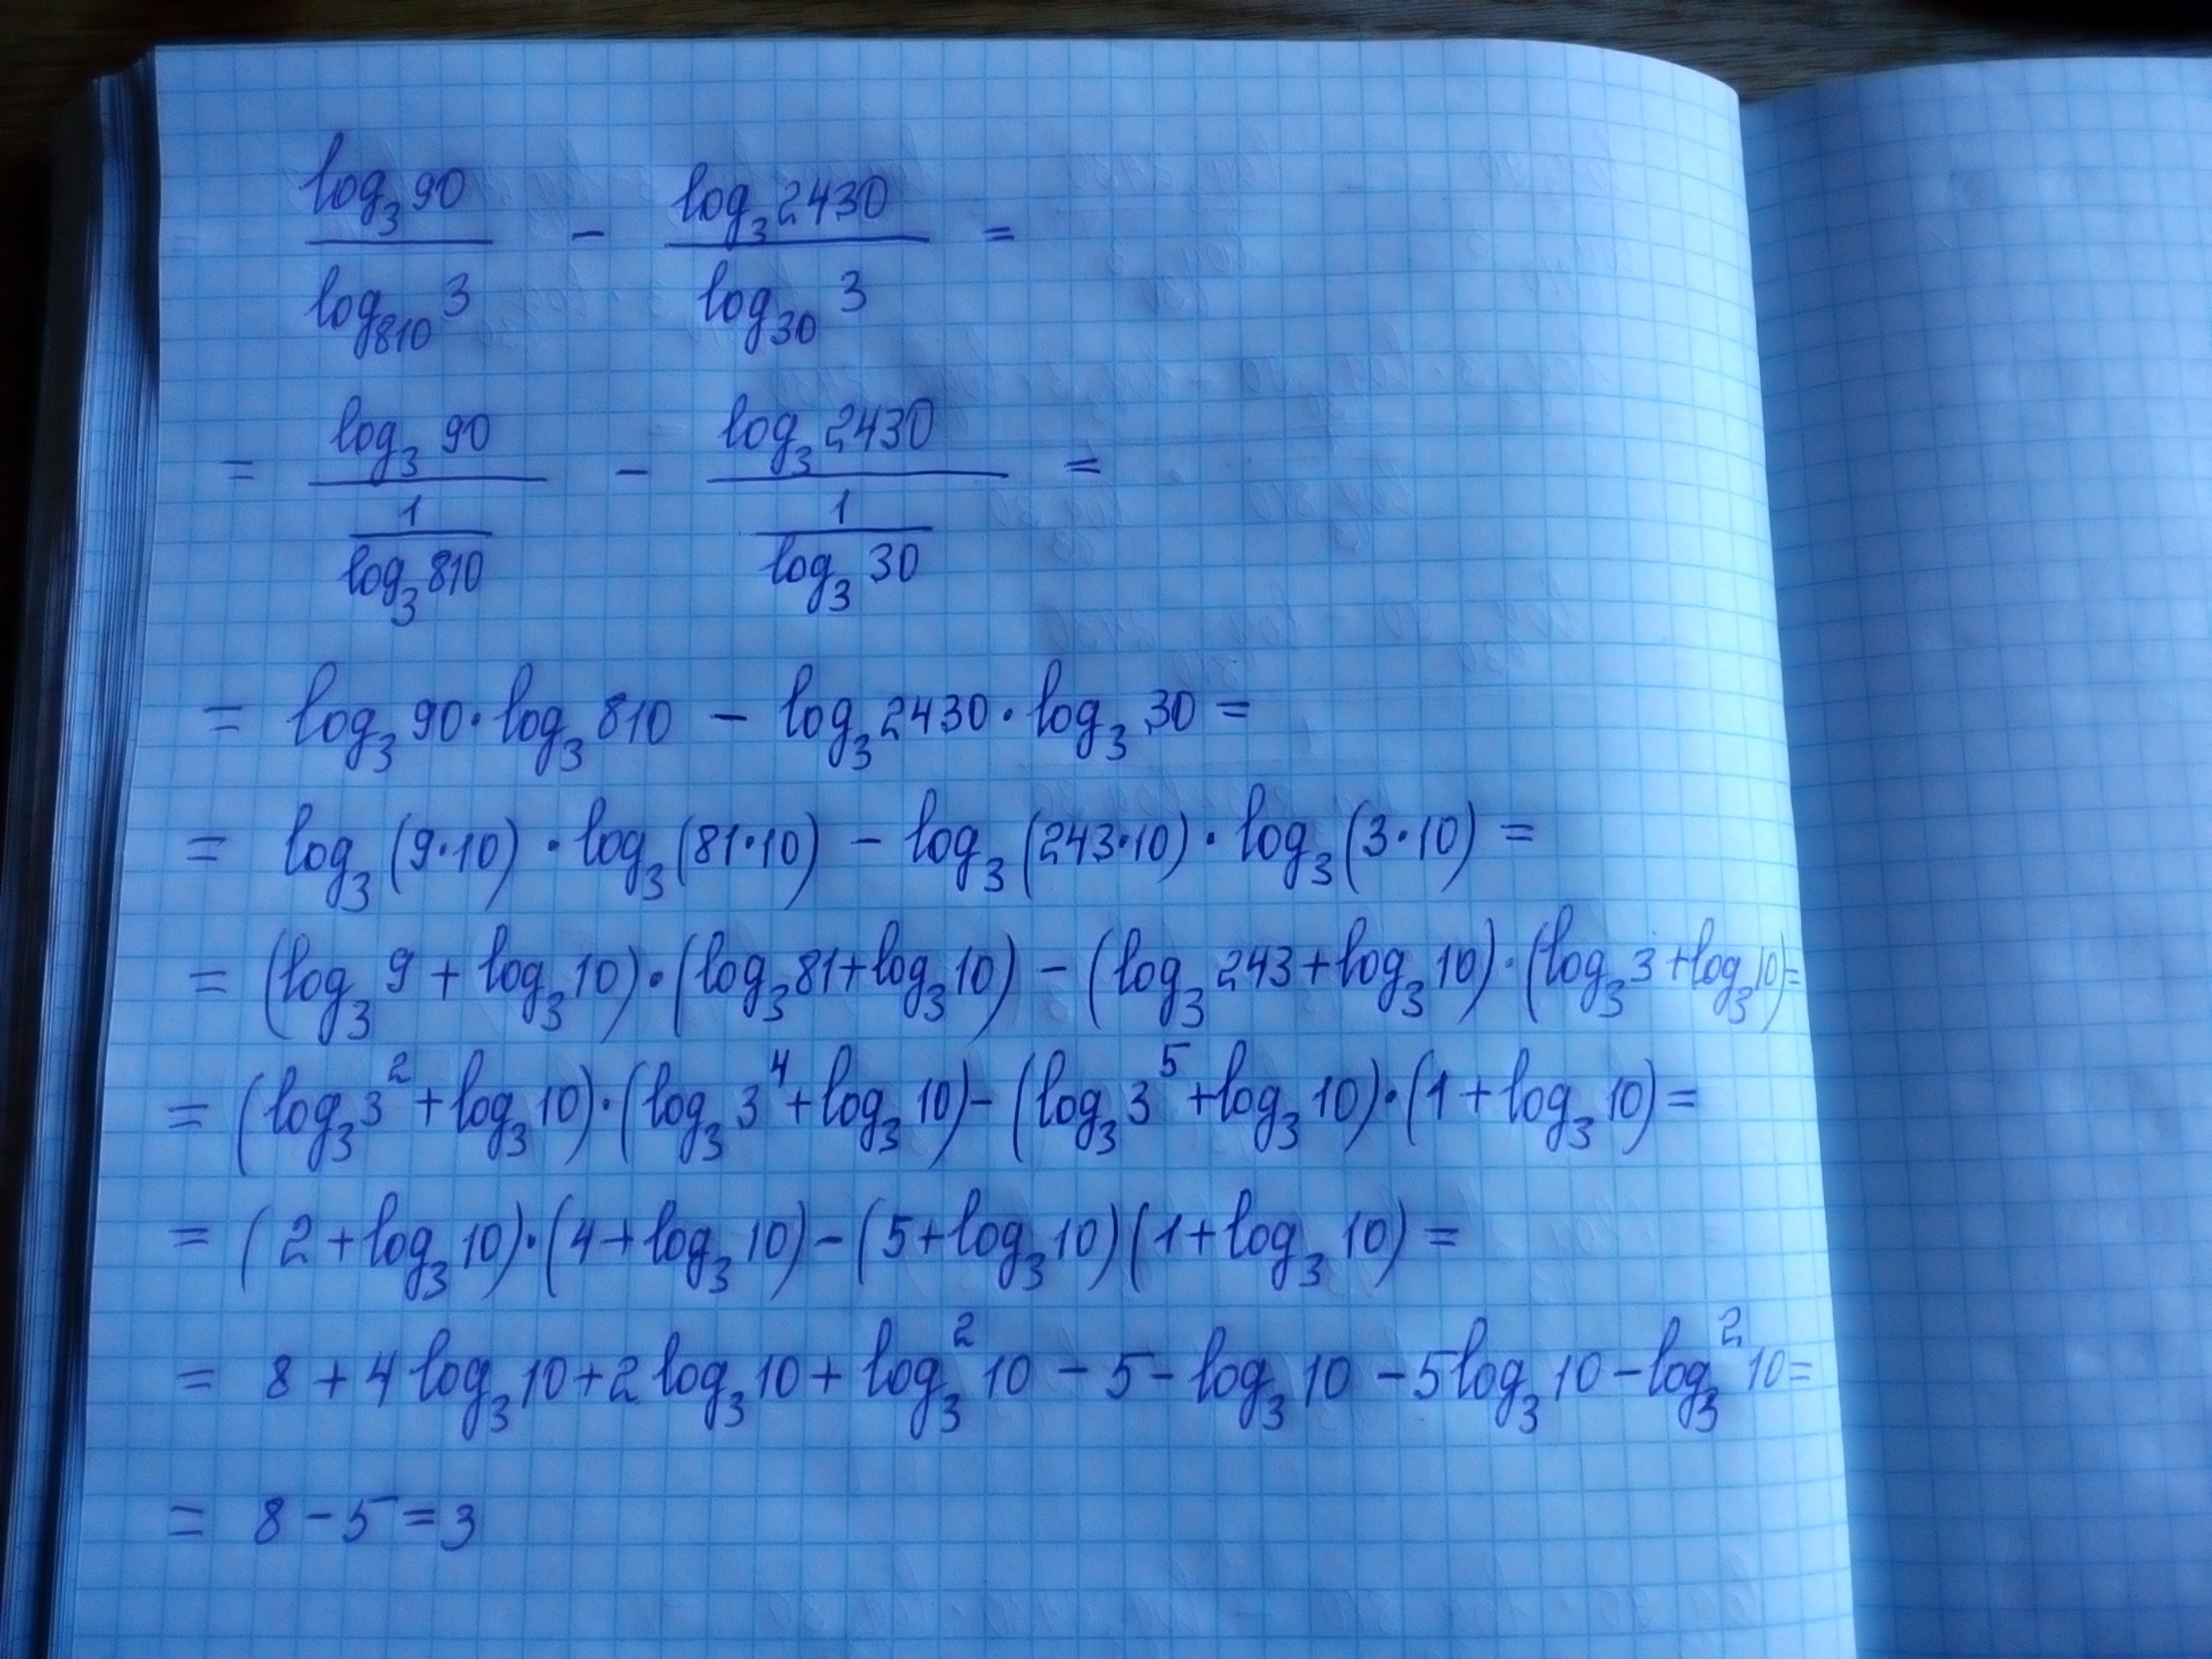 log₃90 / log₈₁₀3 − log₃2430 / log₃₀3 =
= log₃90 / (1 / log₃810) − log₃2430 / (1 / log₃30) =
= log₃90·log₃810 − log₃2430·log₃30 =
= log₃(9·10)·log₃(81·10) − log₃(243·10)·log₃(3·10) =
= (log₃9 + log₃10)·(log₃81 + log₃10) − (log₃243 + log₃10)·(log₃3 + log₃10) =
= (log₃3² + log₃10)·(log₃3⁴ + log₃10) − (log₃3⁵ + log₃10)·(1 + log₃10) =
= (2 + log₃10)·(4 + log₃10) − (5 + log₃10)(1 + log₃10) =
= 8 + 4log₃10 + 2log₃10 + log₃²10 − 5 − log₃10 − 5log₃10 − log₃²10 =
= 8 − 5 = 3